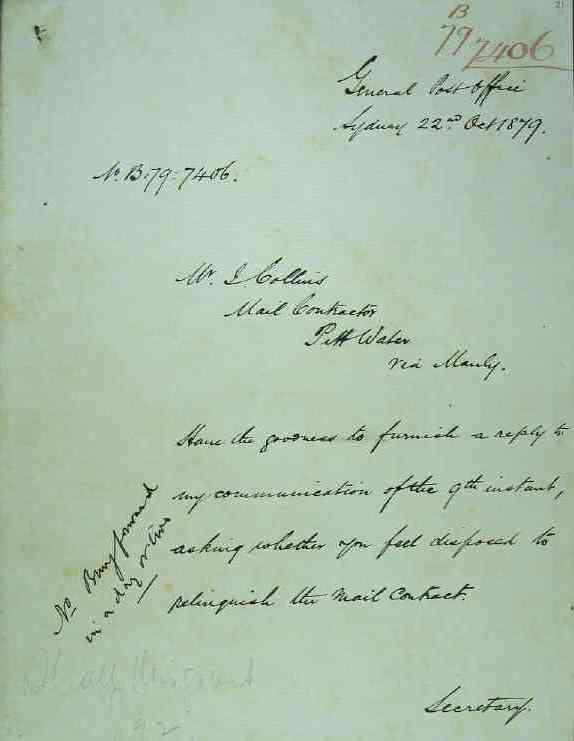 21
B
79 7406
General Post Office
Sydney 22nd Oct 1879.
No. B:79:7406.
Mr. J. Collins
Mail Contractor
Pitt Water
via Manly.
Have the goodness to furnish a reply to
my communication of the 9th instant,
asking whether you feel disposed to
relinquish the Mail Contract.
No Bring forward
in a day or two
Secretary.